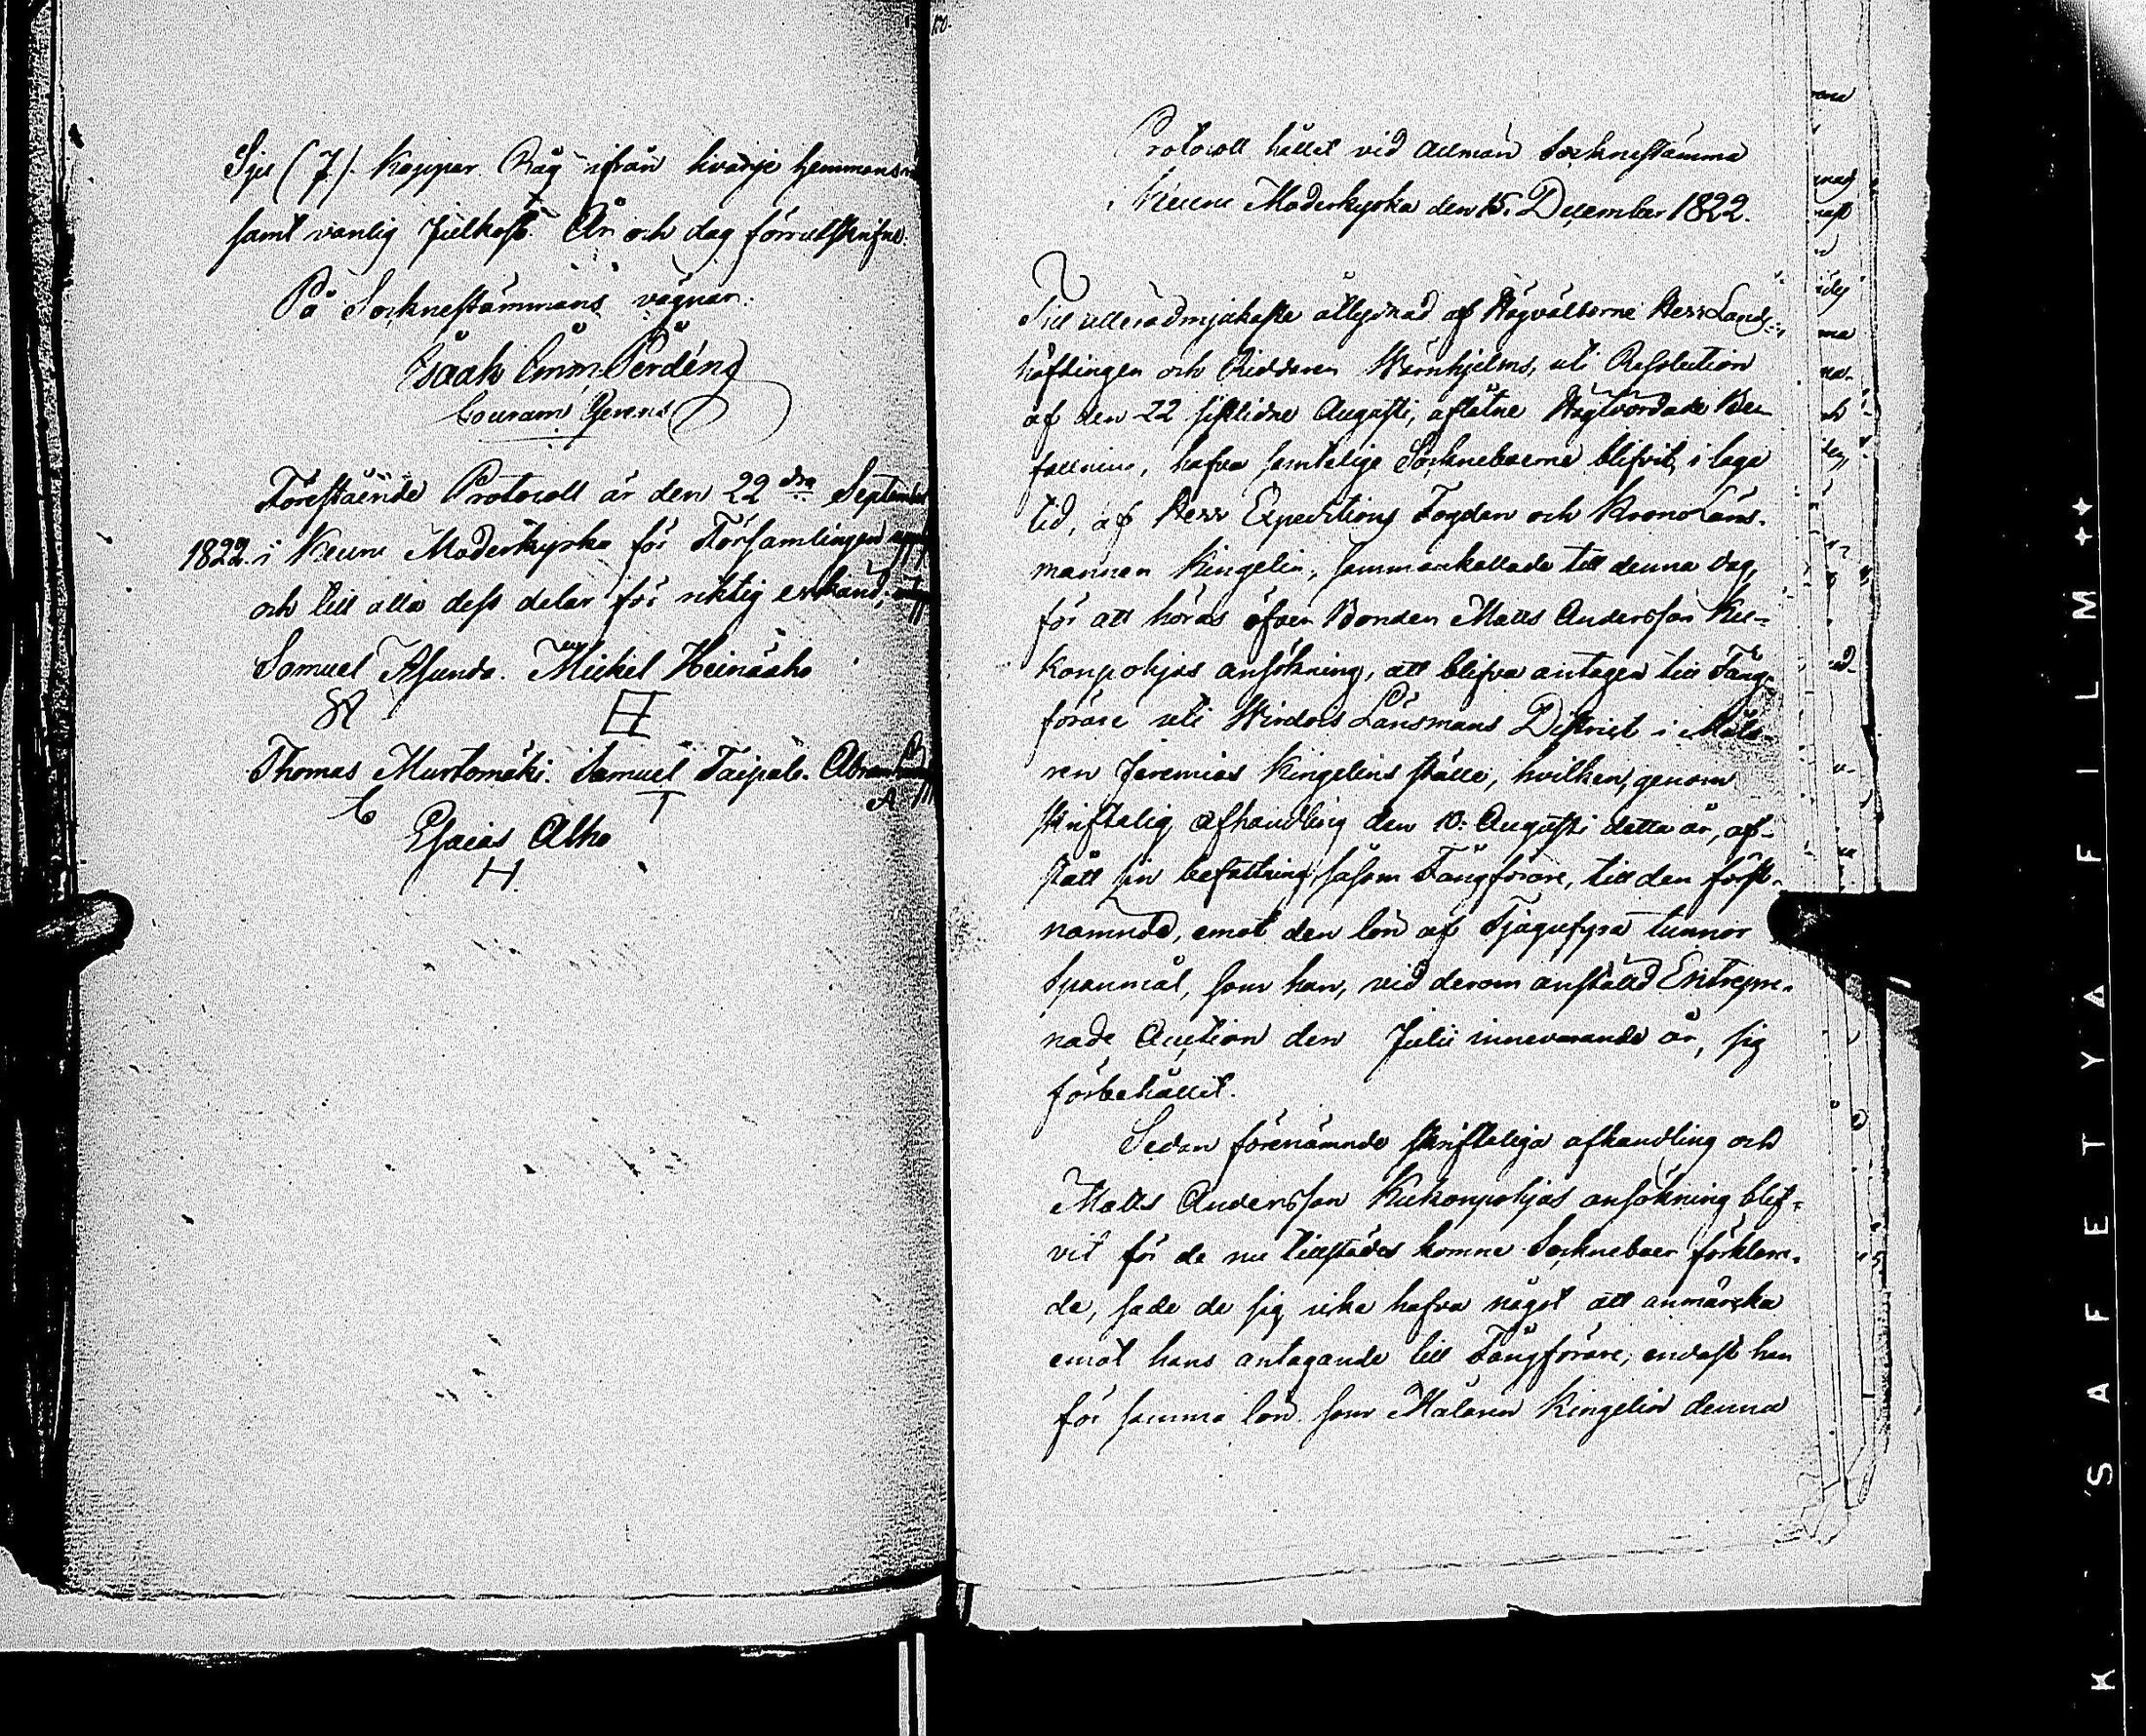 Sju (7) Kappar Råg ifrån hvarje hemmans
samt vanlig Julkost. År och dag förrutskrifne.
På Socknestämmans vägnar.
Isaah Emm. Perdéng
Förestående Protocoll är den 22dra September
1822 i Keuru Moderkyrka för Församlingen
och till alla dess delar för riktig erkänd,
Samuel Asunda. Mickel Heinäaho
SA
Thomas Murtomäki. Samuel Taipale. Abraham
T A
Esaias Alho
H
Protocoll hållet vid allmän Socknestämma
i Keuru Moderkyrka den 15. December 1822.
Till allerödmjukaste åtlydnad af Högvälborne Herr Lands-
höfdingen och Riddaren Wärnhjelms, uti Resolution
af den 22 sistlidne Augusti, aflåtne Högtvördade Be-
fallning, hafva samtelige Sockneboerne blifvit i laga
tid, af Herr Expeditions Fogden och Krono Läns-
mannen Kingelin, sammankallade till denna dag,
för att höras öfver Bonden Matts Andersson Ku-
konpohjas ansökning, att blifva antagen till Fång-
förare uti Wirdois Länsmans District i Måla-
ren Jeremias Kingelins ställe, hvilken, genom
skriftelig afhandling den 10. Augusti detta år, af-
stått sin befattning såsom Fångförare, till den först-
nämnde, emot den lön af Tjugufyra tunnor
Spanmål, som han, vid derom anställd Entrepre-
nade Auction den Julii innevarande år, sig
förbehållit.
Sedan förenämnde skrifteliga afhandling och
Matts Andersson Kukonpohjas ansökning blif-
vit för de nu tillstädes komne Sockneboer förklara-
de, sade de sig icke hafva något att anmärka
emot hans antagande till Fångförare, endast han
för samma lön som Målaren Kingelin denna
K 'S A F E T Y A F I L M ++